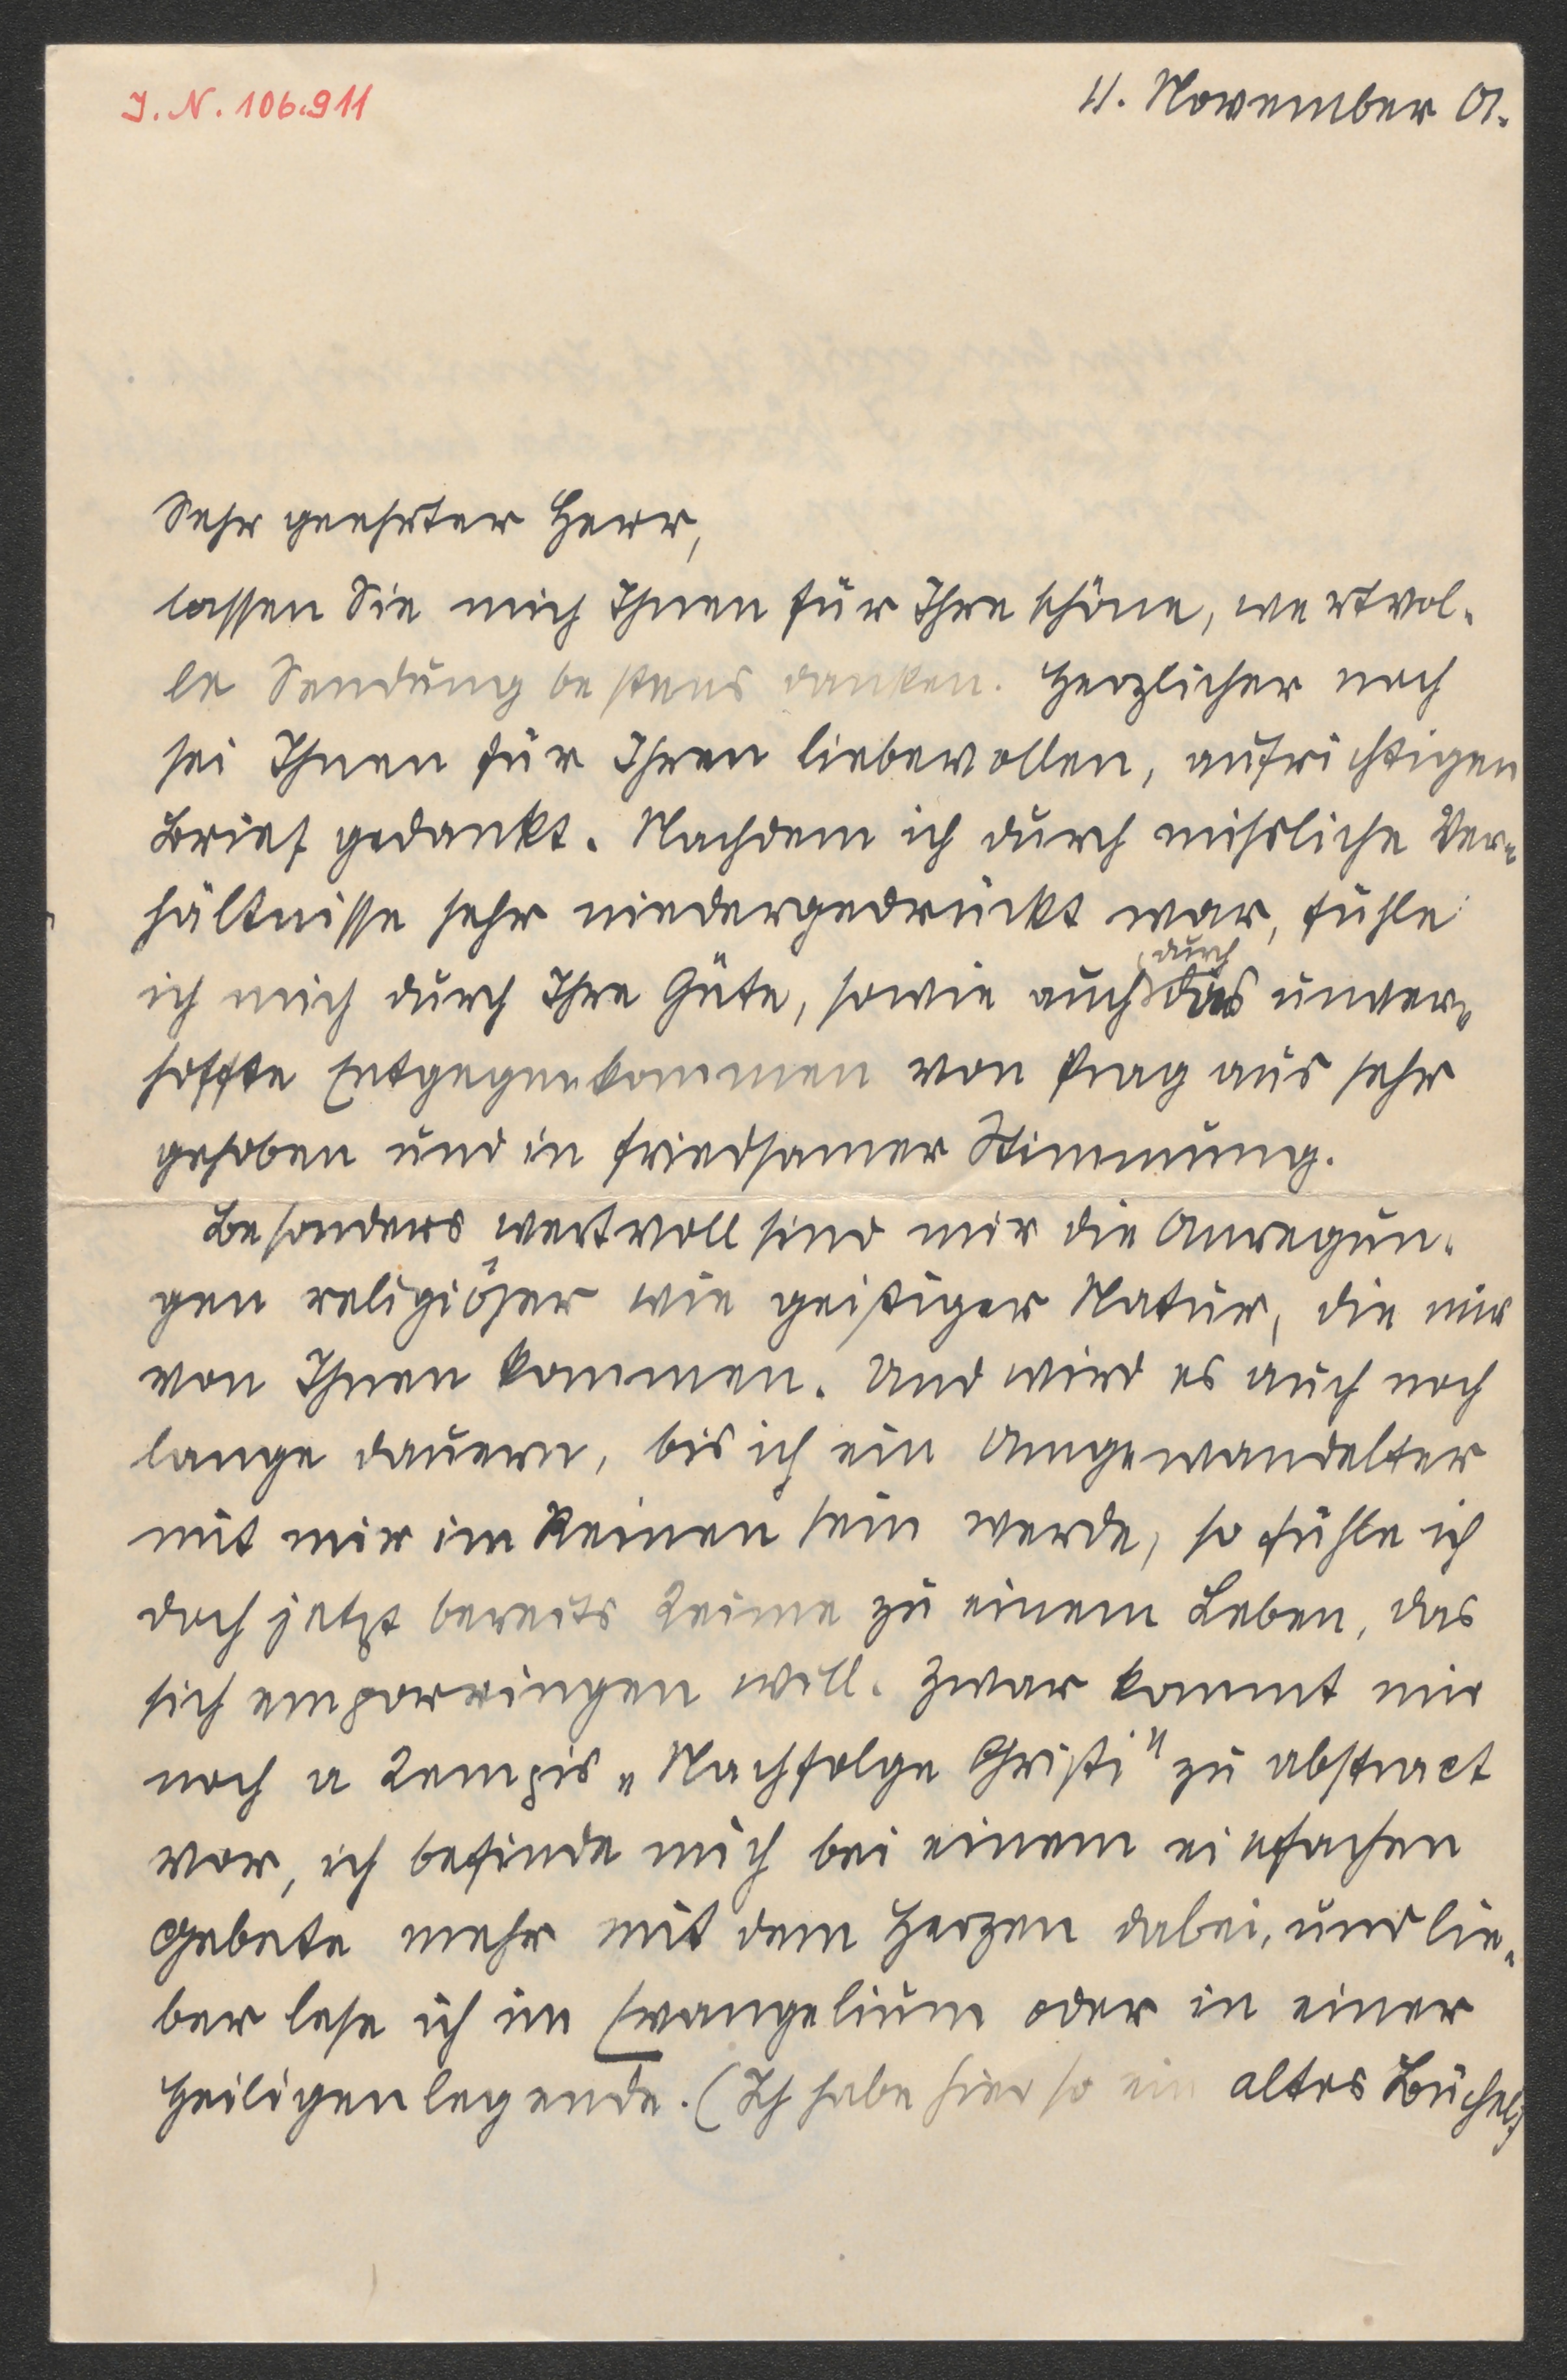 J. N. 106.911
11. November 01.
Sehr geehrter Herr,
lassen Sie mich Ihnen für Ihre schöne, wertvol-
le Sendung bestens danken. Herzlicher noch
sei Ihnen für Ihren liebevollen, aufrichtigen
Brief gedankt. Nachdem ich durch missliche Ver-
hältnisse sehr niedergedrückt war, fühle
durch
ich mich durch Ihre Güte, sowie auch das unver-
hoffte Entgegenkommen von Prag aus sehr
gehoben und in friedsamer Stimmung.
Besonders wertvoll sind mir die Anregun-
gen religiöser wie geistiger Natur, die mir
von Ihnen kommen. Und wird es auch noch
lange dauern, bis ich ein Umgewandelter
mit mir im Reinen sein werde, so fühle ich
doch jetzt bereits Keime zu einem Leben, das
sich emporringen will. Zwar kommt mir
noch a Kempis „Nachfolge Christi" zu abstract
vor, ich befinde mich bei einem einfachen
Gebete mehr mit dem Herzen dabei, und lie-
ber lese ich im Evangelium oder in einer
Heiligenlegende. (Ich habe hier so ein altes Büchel)